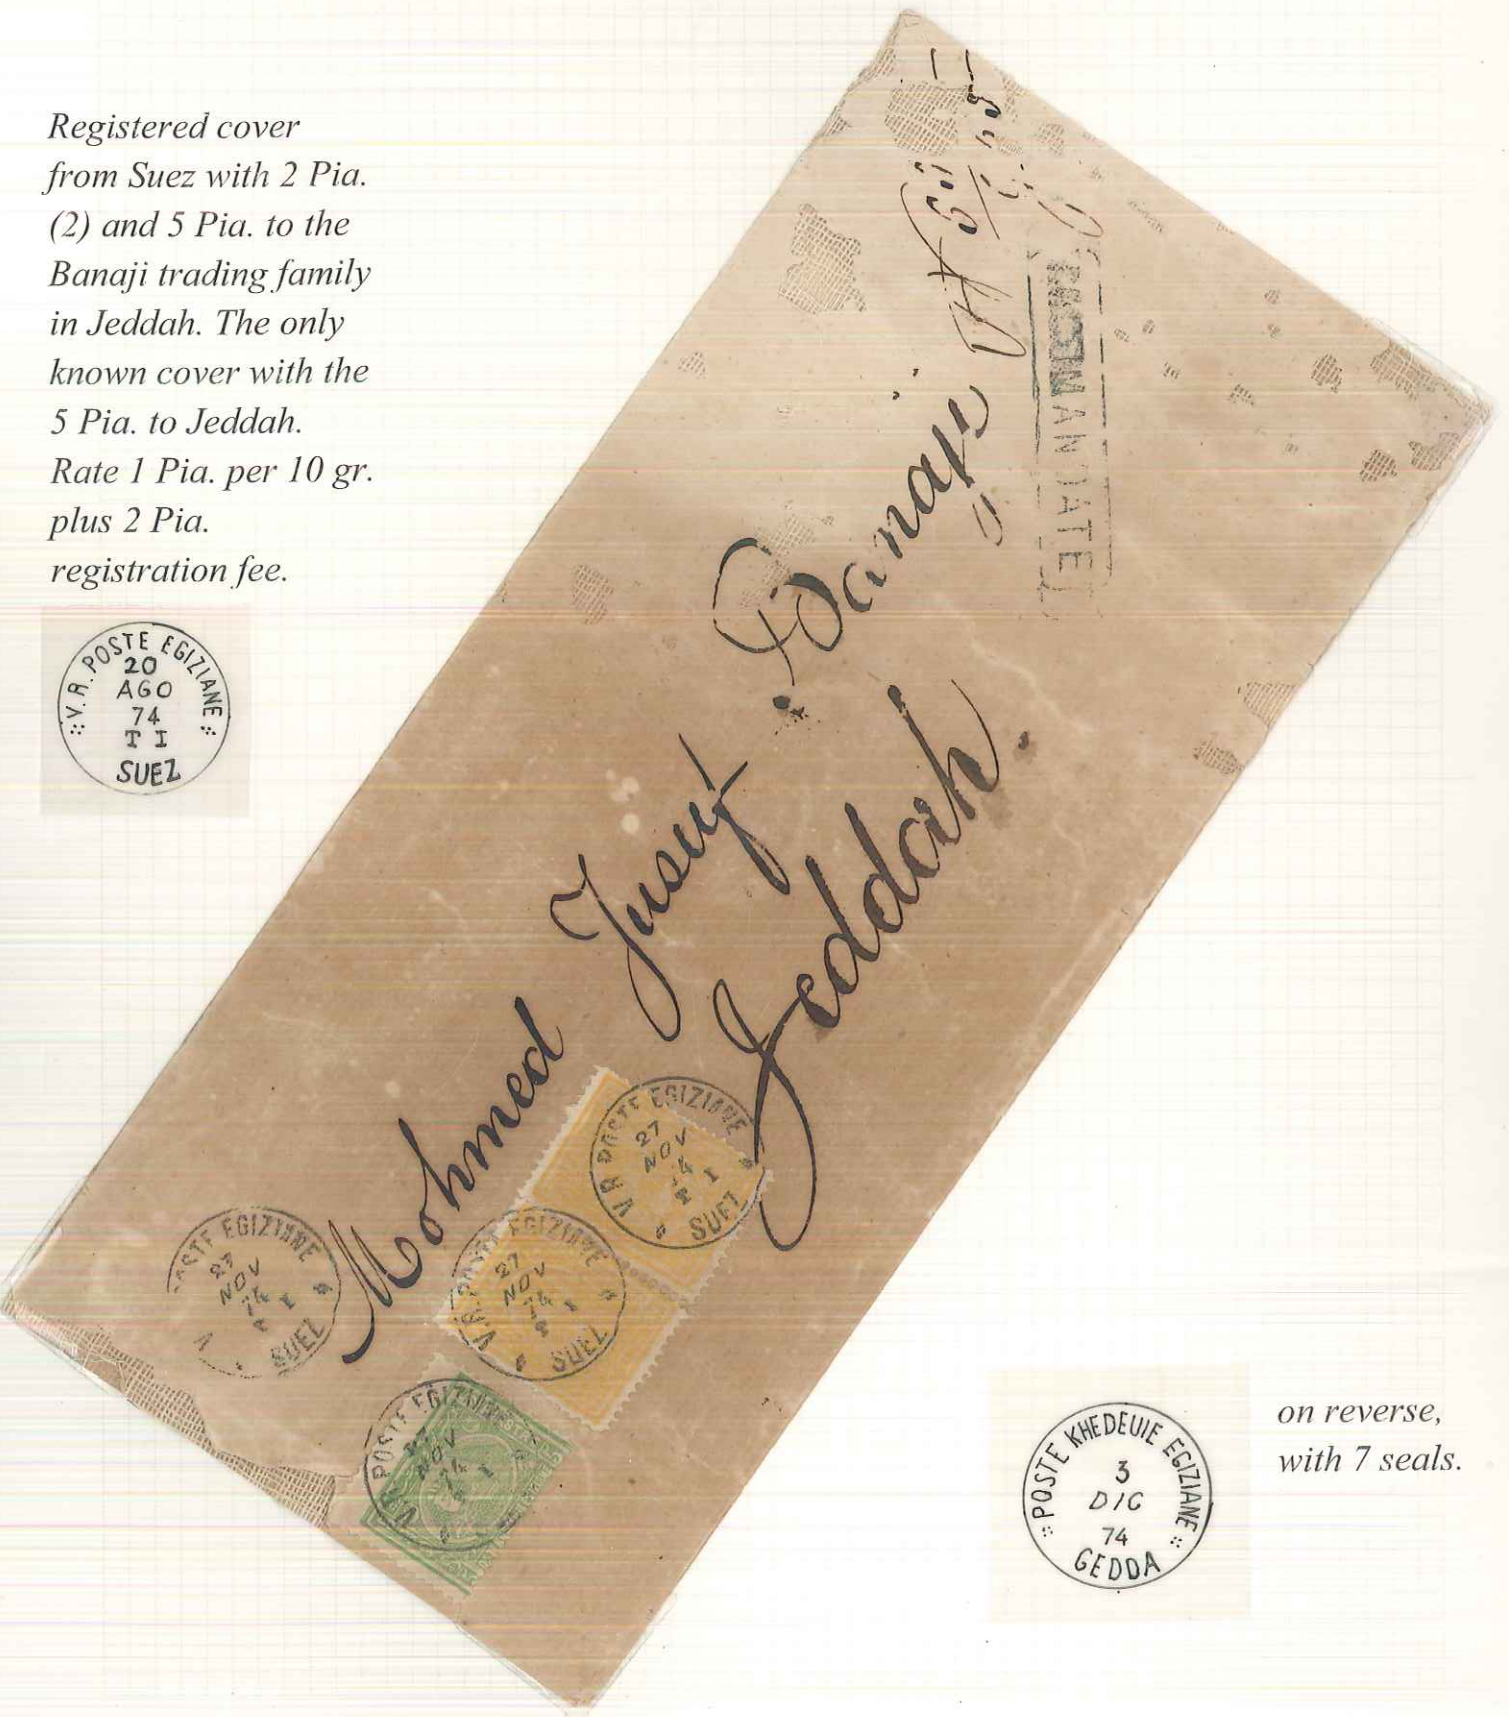 Registered cover
from Suez with 2 Pia.
(2) and 5 Pia. to the
Banaji trading family
in Jeddah. The only
known cover with the
5 Pia. to Jeddah.
Rate 1 Pia. per 10 gr.
plus 2 Pia.
registration fee.
V.R. POSTE EGIZIANE
20
AGO
74
T I
SUEZ
Mohmed Jusuf Banaji
Jeddah.
V.R. POSTE EGIZIANE
27
NOV
SUEZ
V.R. POSTE EGIZIANE
27
NOV
74
SUEZ
POSTE EGIZIANE
27
NOV
74
SUEZ
V.R. POSTE EGIZIANE
27
NOV
74
POSTE KHEDEUIE EGIZIANE
3
DIC
74
GEDDA
on reverse,
with 7 seals.